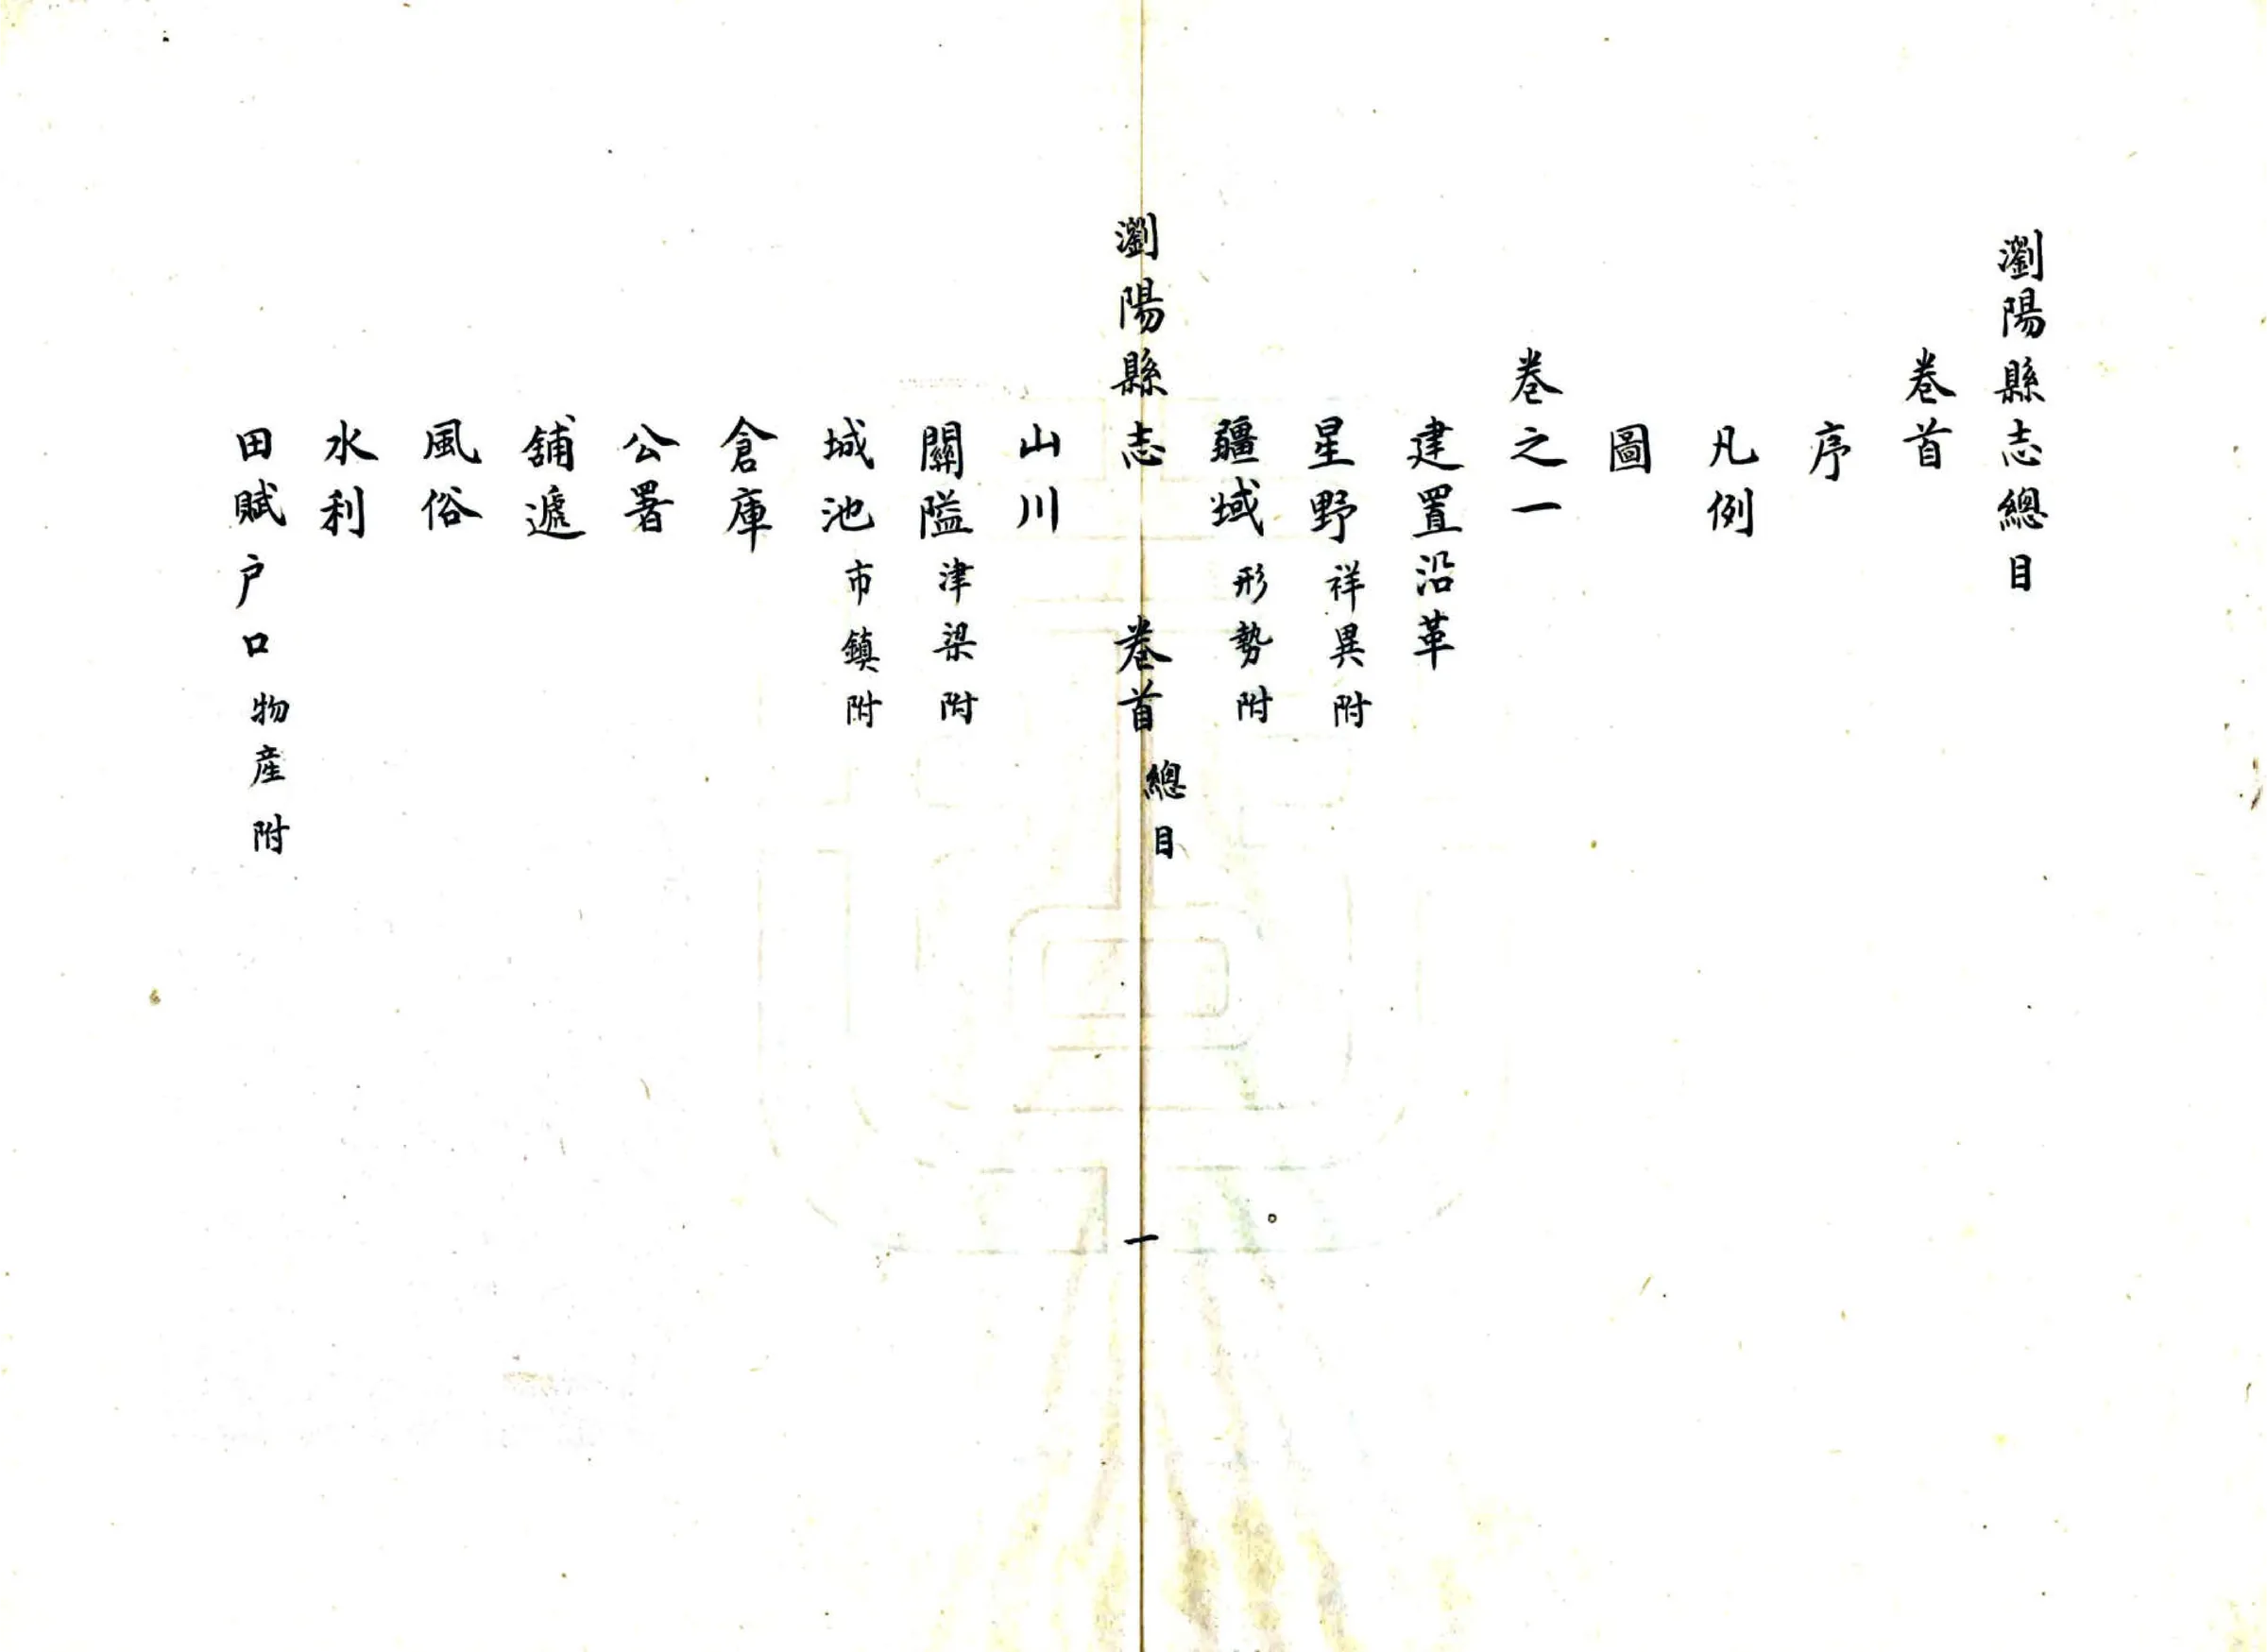 瀏陽縣志總目
卷首
序
凡例
圖
卷之一
建置沿革
星野 祥異附
疆域 形勢附
瀏陽縣志 卷首 總目 一
山川
關隘 津梁附
城池 市鎮附
倉庫
公署
舖遞
風俗
水利
田賦户口 物産附